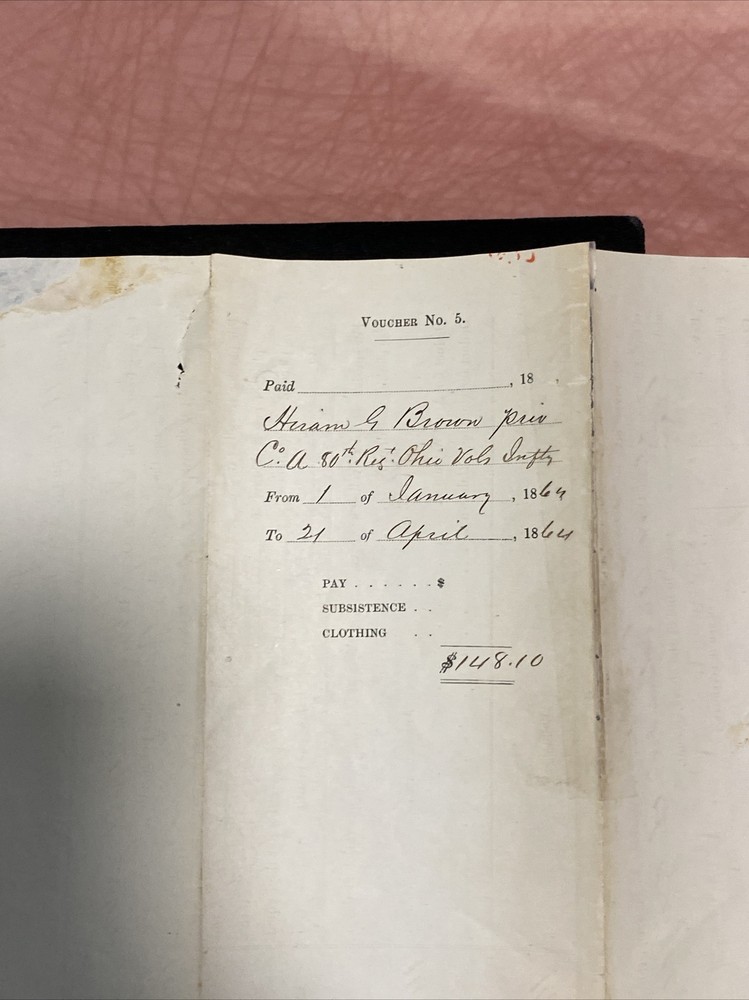 VOUCHER No. 5.
Paid , 18
Hiram G Brown priv
Co. A 80th Regt. Ohio Vols Infty
From 1 of January, 1864
To 21 of April, 1864
PAY . . . . . . $
SUBSISTENCE . .
CLOTHING . .
$148.10